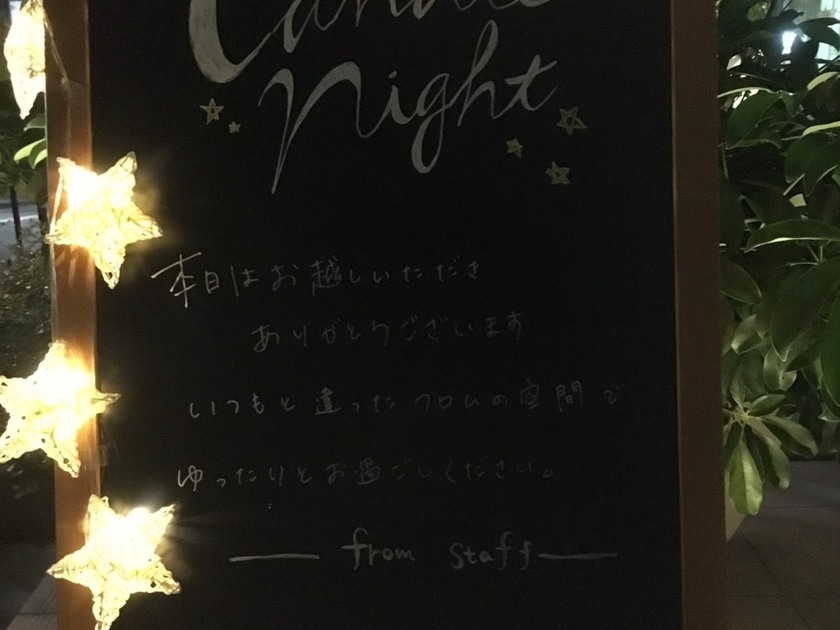 Candle
Night
本日はお越しいただき
ありがとうございます
いつもと違ったフロムの空間で
ゆったりとお過ごしください。
from staff